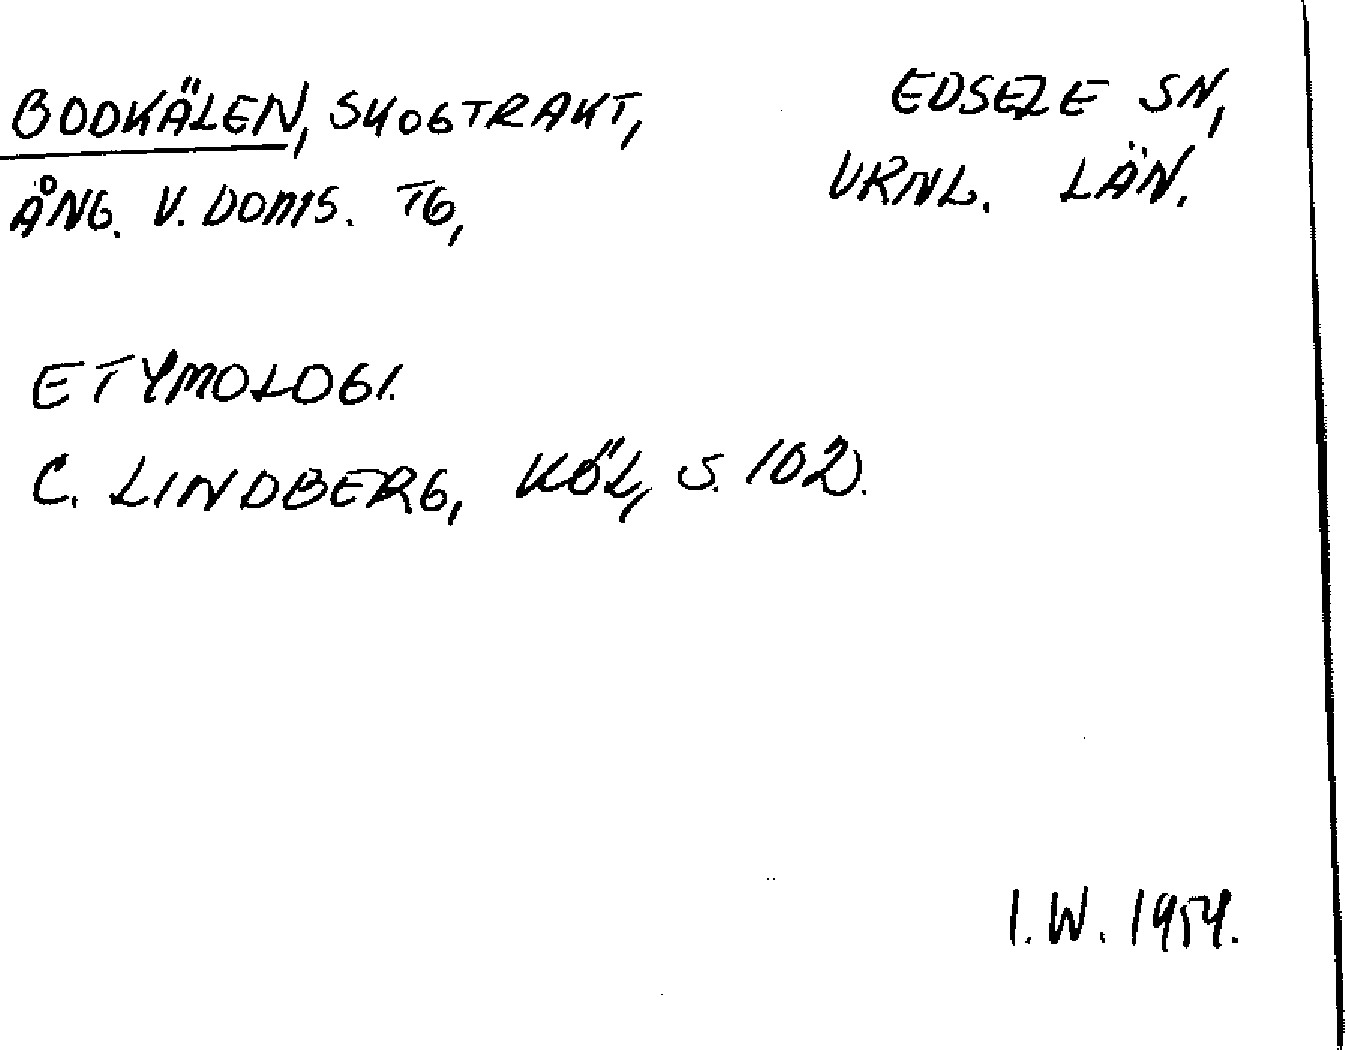 BODKÄLEN, SKOGTRAKT,
ÅNG. V. DOMS. TG,
EDSELE SN,
VRNL. LÄN.
ETYMOLOGI.
C. LINDBERG, KÖL, S. 102.
I. W. 1954.